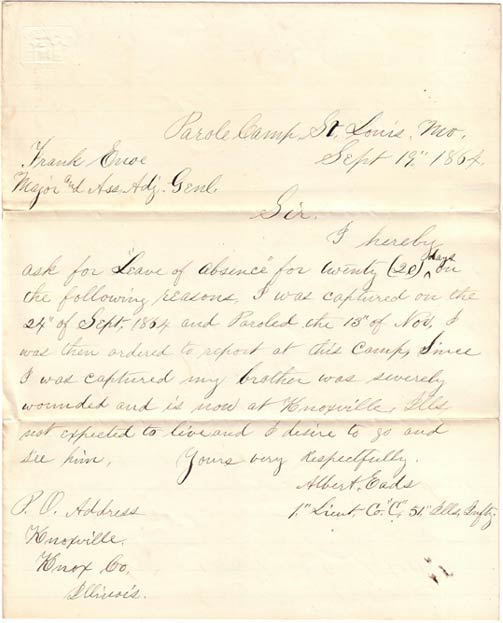 Parole Camp, St. Louis, Mo.
Sept 19" 1864.
Frank Enoe
Major and Ass. Adj. Genl.
Sir.
I hereby
ask for "Leave of absence" for twenty (20) days on
the following reasons, I was captured on the
24" of Sept. 1864 and Paroled the 13" of Nov, I
was then ordered to report at this Camp, Since
I was captured my brother was severely
wounded and is now at Knoxville, Ills
not expected to live and I desire to go and
see him,
Yours very Respectfully.
Albert Eads
1" Lieut. Co. "C", 51" Ills, Infty.
P. O. Address
Knoxville,
Knox Co.
Illinois.